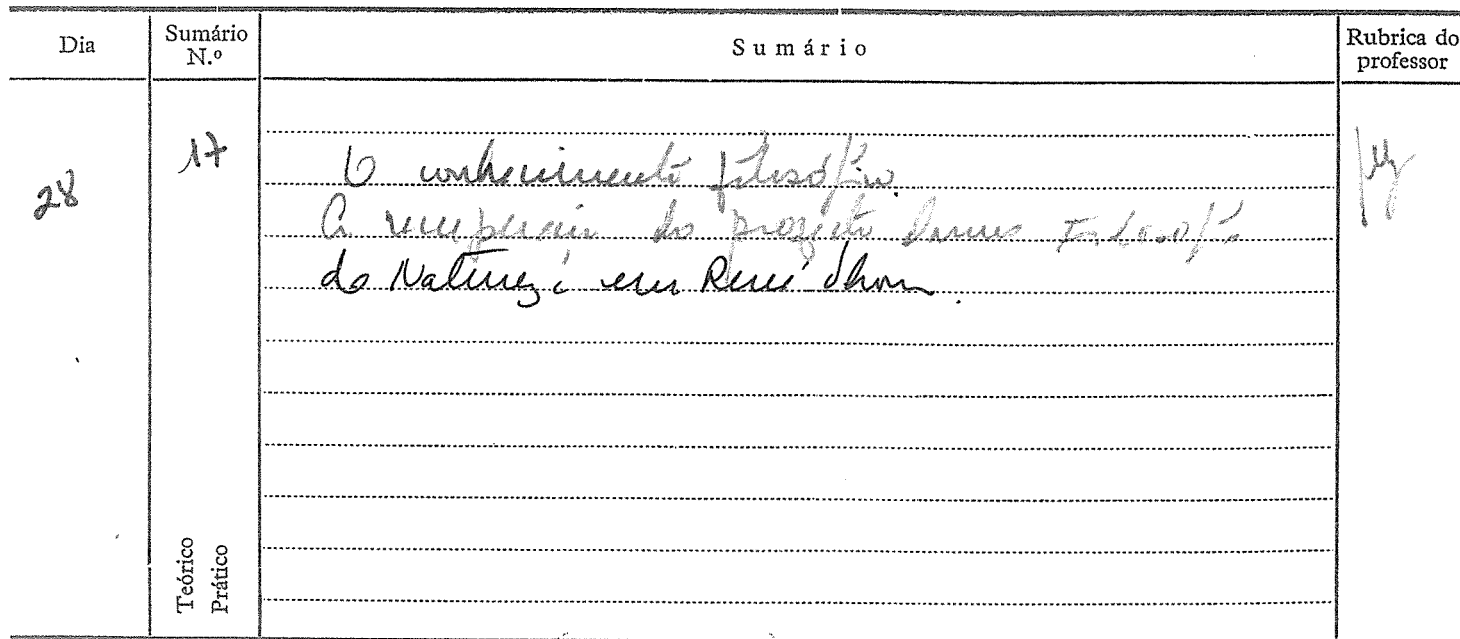 Dia
Sumário N.º
Sumário
Rubrica do professor
28
17
O conhecimento filosófico.
A recuperação do projecto duma Filosofia
da Natureza em René Thom.
Teórico
Prático